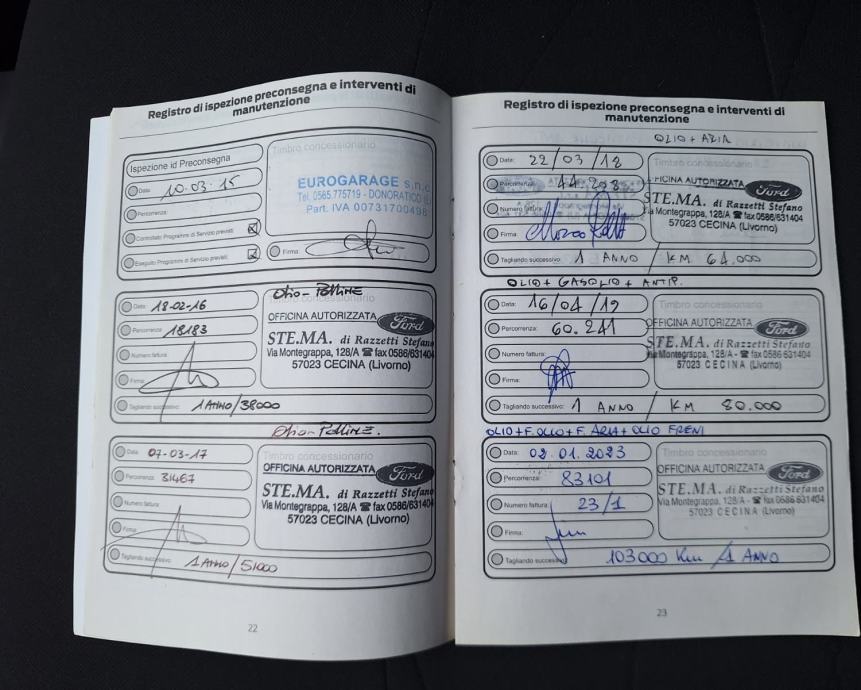 Registro di ispezione preconsegna e interventi di
manutenzione
Ispezione id Preconsegna
Timbro concessionario
Data 10-03-15
EUROGARAGE s.n.c.
Tel. 0565.775719 - DONORATICO
Part. IVA 00731700496
Percorrenza:
Controllato Programmi di Servizio previsti
Eseguito Programmi di Servizio previsti
Firma:
Olio - Polline
Data: 18-02-16
Timbro concessionario
OFFICINA AUTORIZZATA Ford
Percorrenza: 18183
STE.MA. di Razzetti Stefano
Via Montegrappa, 128/A ☎ fax 0586/631404
57023 CECINA (Livorno)
Numero fattura:
Firma:
Tagliando successivo: 1 ANNO/38000
Olio - Polline.
Data 07-03-17
Timbro concessionario
OFFICINA AUTORIZZATA Ford
Percorrenza: 31467
STE.MA. di Razzetti Stefano
Via Montegrappa, 128/A ☎ fax 0586/631404
57023 CECINA (Livorno)
Numero fattura
Firma:
Tagliando successivo: 1 ANNO/51000
22
Registro di ispezione preconsegna e interventi di
manutenzione
OLIO + ARIA
Data: 22/03/18
Timbro concessionario
Percorrenza: 44.203
OFFICINA AUTORIZZATA Ford
Numero fattura:
STE.MA. di Razzetti Stefano
Via Montegrappa, 128/A ☎ fax 0586/631404
57023 CECINA (Livorno)
Firma:
Tagliando successivo: 1 ANNO / KM 64.000
OLIO + GASOLIO + ANTIP.
Data: 16/04/19
Timbro concessionario
Percorrenza: 60.241
OFFICINA AUTORIZZATA Ford
STE.MA. di Razzetti Stefano
Via Montegrappa, 128/A - ☎ fax 0586 631404
57023 CECINA (Livorno)
Numero fattura:
Firma:
Tagliando successivo: 1 ANNO / KM 80.000
OLIO + F. OLIO + F. ARIA + OLIO FRENI
Data: 02.01.2023
Timbro concessionario
Percorrenza: 83101
OFFICINA AUTORIZZATA Ford
STE.MA. di Razzetti Stefano
Via Montegrappa, 128/A - ☎ fax 0586/631404
57023 CECINA (Livorno)
Numero fattura 23/1
Firma:
Tagliando successivo: 103000 Km / 1 ANNO
23